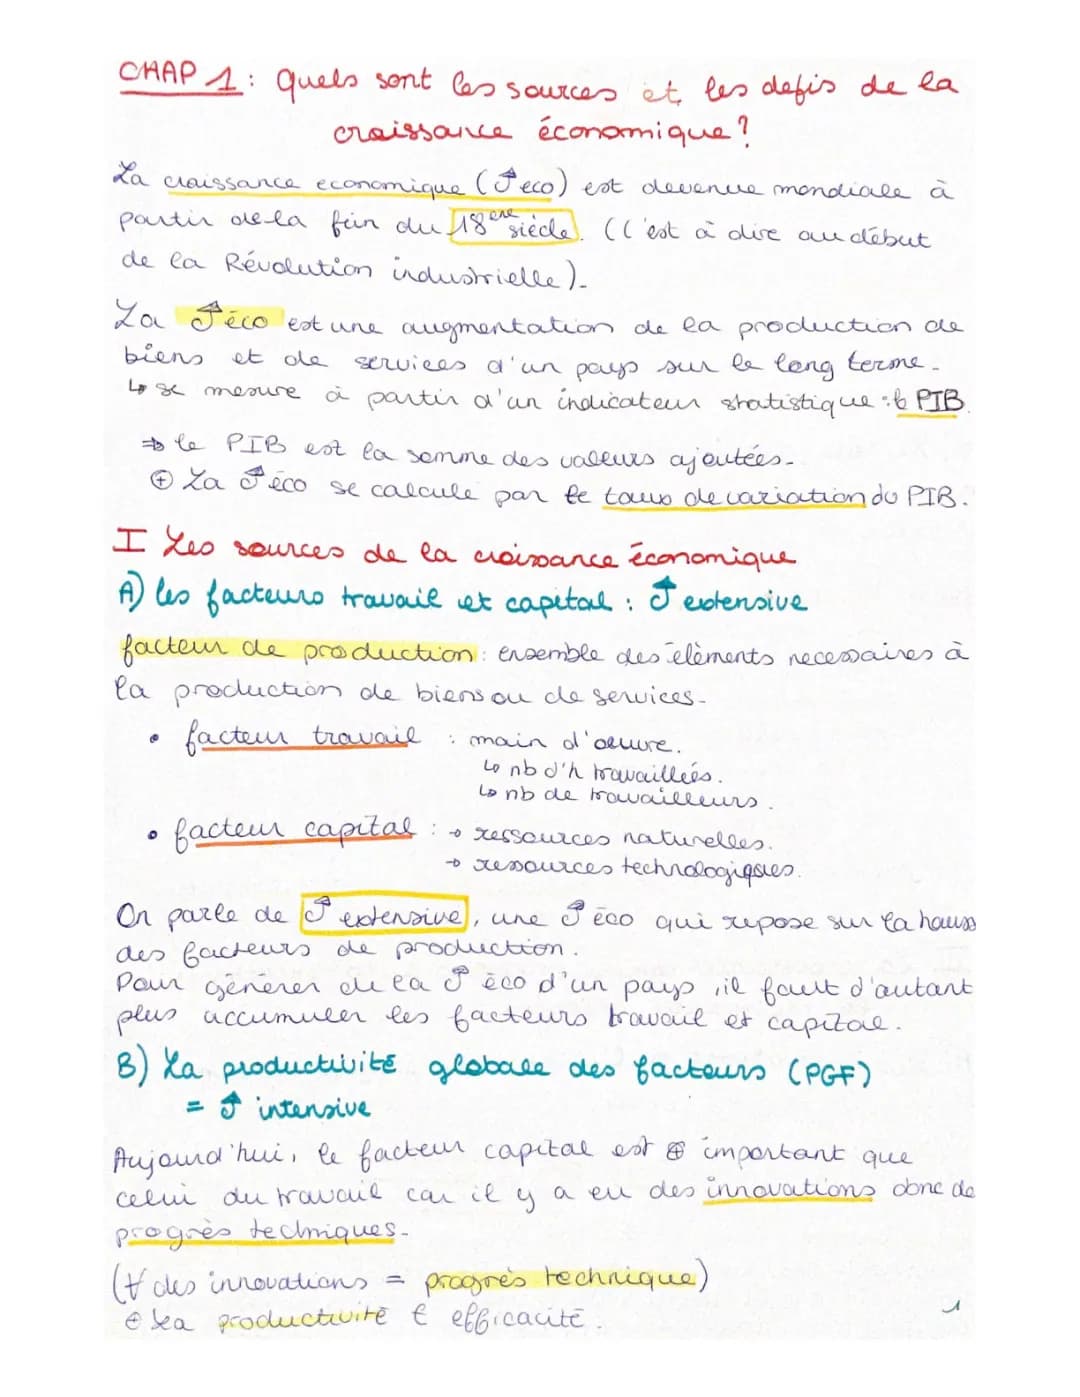 CHAP 1 : quels sont les sources et les defis de la
croissance économique ?
La croissance economique (↑ eco) est devenue mondiale à
partir de la fin du 18ère siècle. (C'est à dire au début
de la Révolution industrielle).
La ↑ éco est une augmentation de la production de
biens et de services d'un pays sur le long terme.
↳ se mesure à partir d'un indicateur statistique : le PIB
⇒ le PIB est la somme des valeurs ajoutées.
⊕ La ↑ éco se calcule par le taux de variation du PIB.
I Les sources de la croissance économique
A) les facteurs travail et capital : ↑ extensive
facteur de production : ensemble des élèments necessaires à
la production de biens ou de services.
• facteur travail : main d'oeuvre.
↳ nb d'h travaillées.
↳ nb de travailleurs.
• facteur capital : → ressources naturelles.
→ ressources technologiques.
On parle de ↑ extensive, une ↑ éco qui repose sur la hausse
des facteurs de production.
Pour générer de la ↑ éco d'un pays, il faut d'autant
plus accumuler les facteurs travail et capital.
B) La productivité globale des facteurs (PGF)
= ↑ intensive
Aujourd'hui, le facteur capital est ⊕ important que
celui du travail car il y a eu des innovations donc de
progrès techniques.
(∀ des innovations = progrès technique)
⊕ La productivité € efficacité.
1